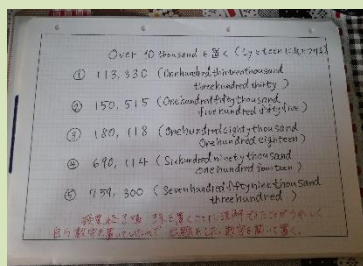 Over 10 thousand を書く (ty と teen に気をつける)
① 113,330 (One hundred thirteen thousand
three hundred thirty)
② 150,515 (One hundred fifty thousand
five hundred fifty five)
③ 180,118 (One hundred eighty thousand
One hundred eighteen)
④ 690,114 (Six hundred ninety thousand
one hundred fourteen)
⑤ 759,300 (Seven hundred fifty nine thousand
three hundred)
授業終了後
自ら数字を書いて
数字を聞いて書く。